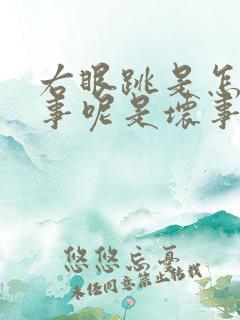 右眼跳是怎
事呢是坏事
悠悠忘忧
未经同意禁止转载